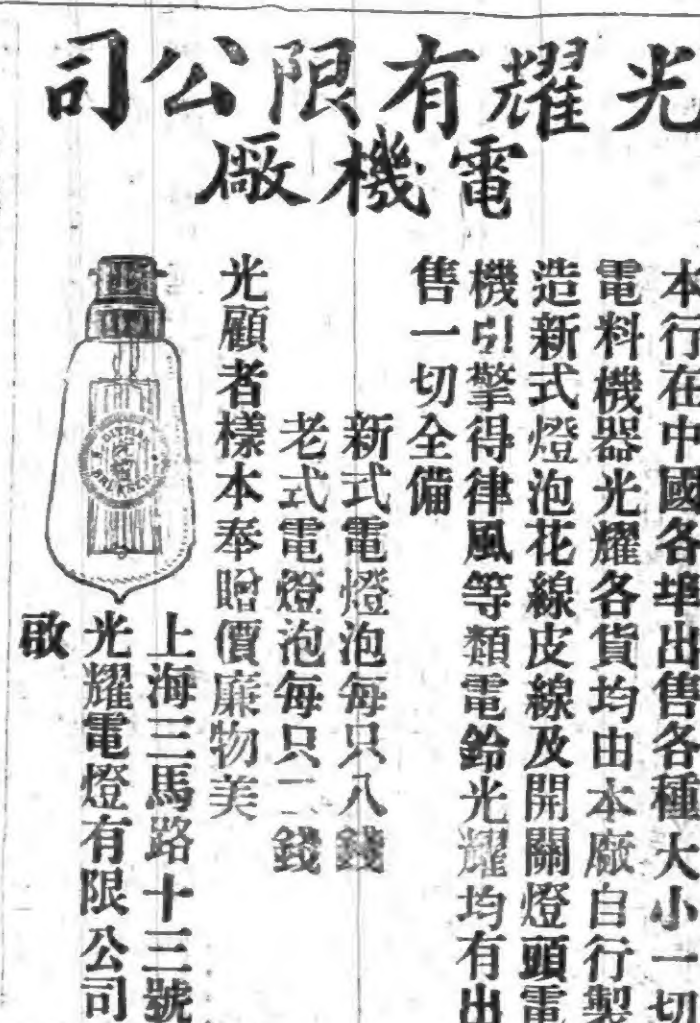 光耀有限公司
電機廠
本行在中國各埠出售各種大小一切
電料機器光耀各貨均由本廠自行製
造新式燈泡花線皮線及開關燈頭電
機引擎得律風等類電鈴光耀均有出
售一切全備
新式電燈泡每只八錢
老式電燈泡每只二錢
光顧者樣本奉贈價廉物美
上海三馬路十三號
光耀電燈有限公司
啟